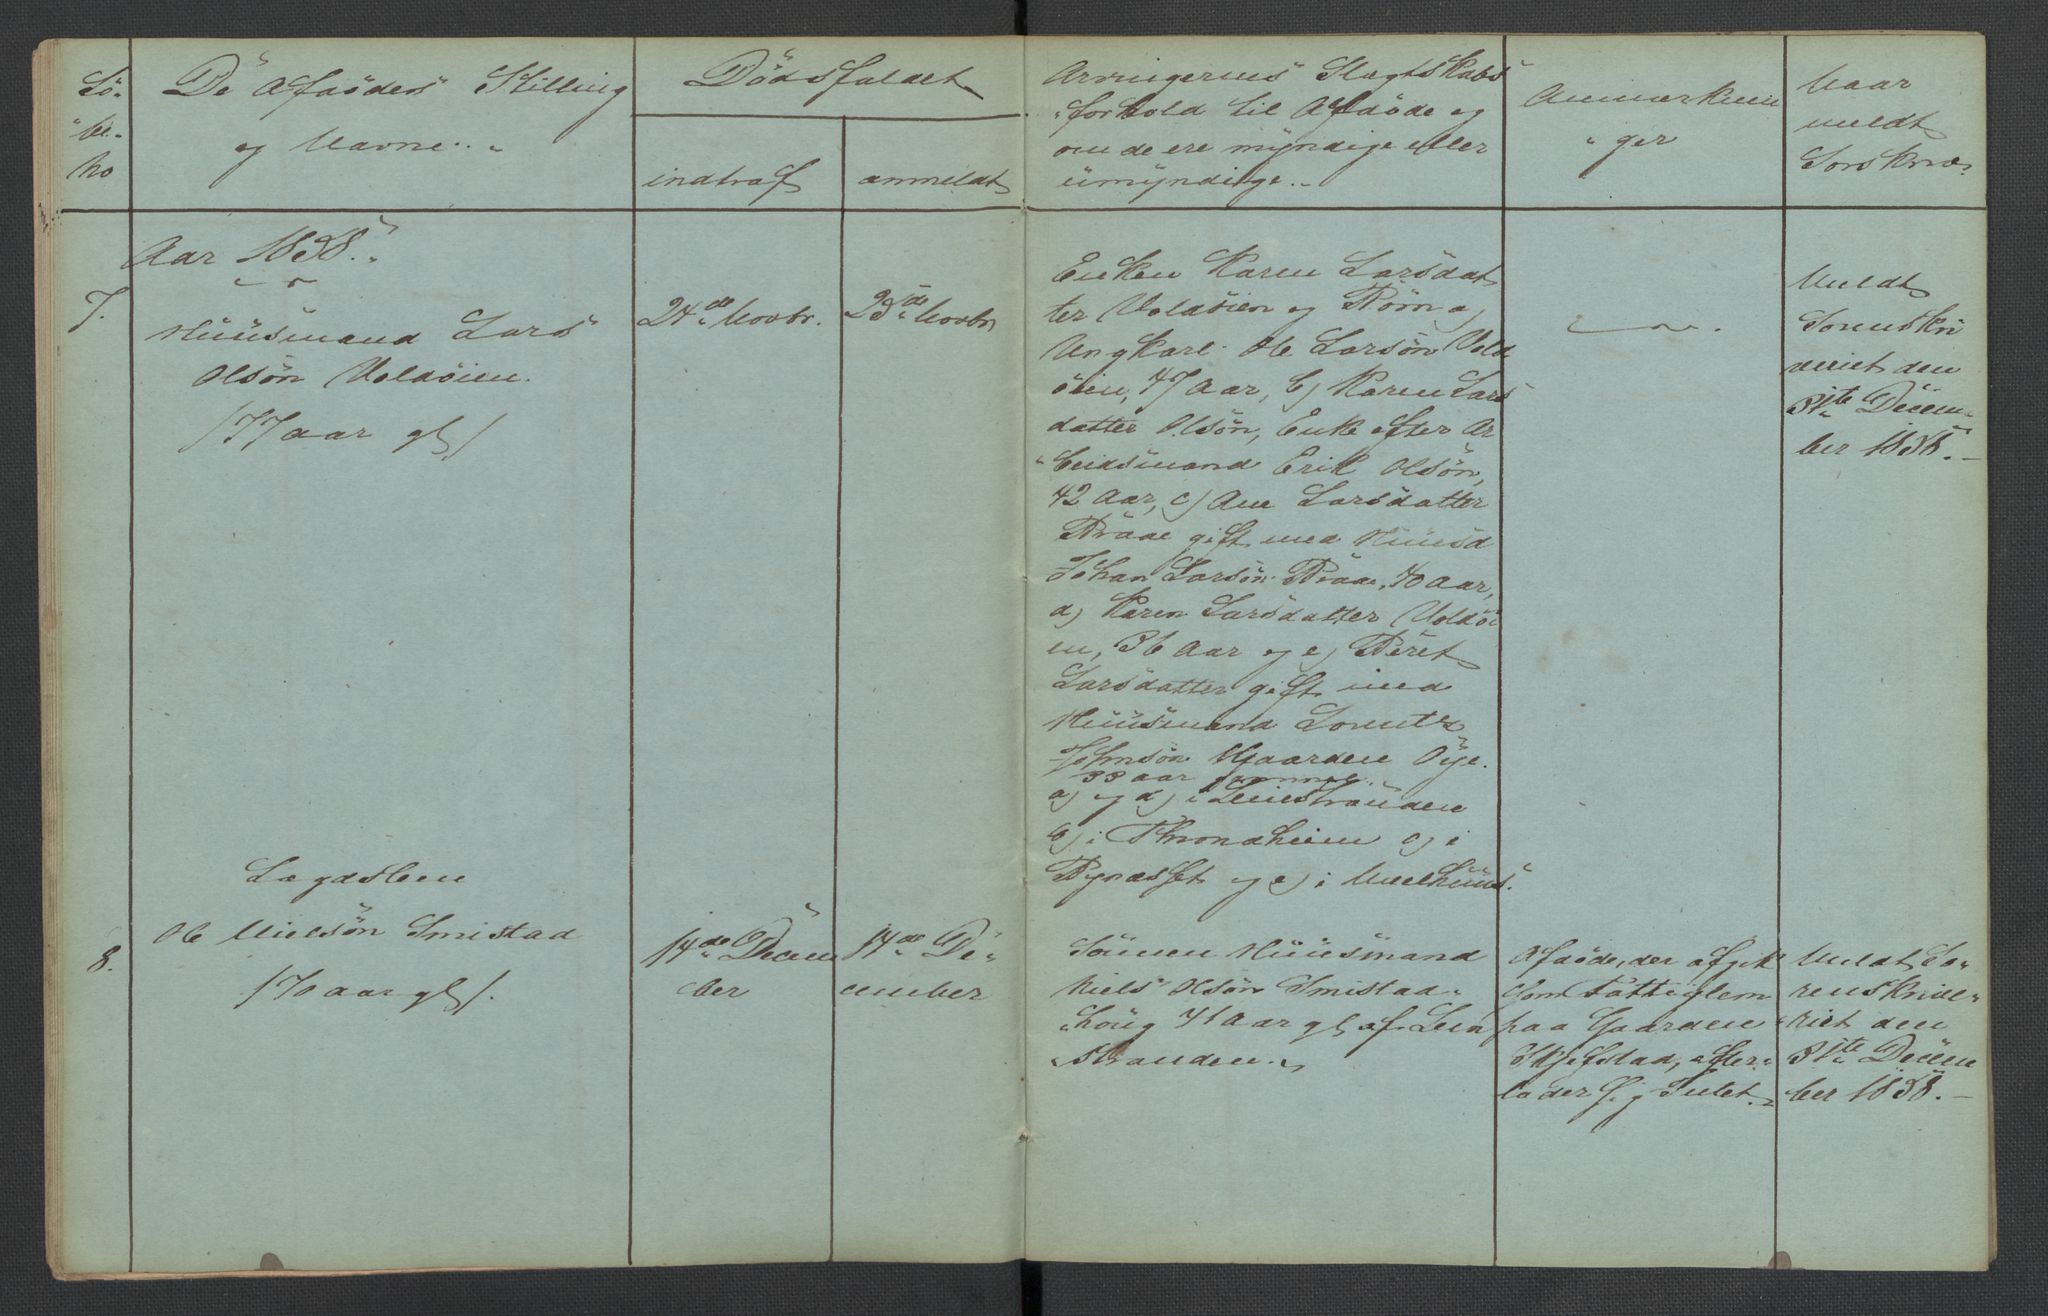 Lö-
be-
no
De Afdødes Stilling
og Navne.
Dødsfaldet
indtraf
anmeldt
Arvingernes Slægtskabs
forhold til Afdøde og
om de ere myndige eller
umyndige.
Anmærknin
ger
Naar
meldt
Sorskriv.
Aar 1858.
7.
Huusmand Lars
Olsøn Voldøien.
/77 aar gl/
24de Novbr.
25de Novbr
Enken Karen Larsdat
ter Voldøien og Børn a)
Ungkarl Ole Larsøn Vold
øien, 47 Aar, b) Karen Lars
datter Olsøn, Enke efter Ar
beidsmand Erik Olsøn,
42 Aar, c) Ane Larsdatter
Braae gift med Huusd
Johan Larsøn Braae, 40 Aar,
d) Karen Larsdatter Voldøi
en, 36 Aar og e) Beret
Larsdatter gift med
Huusmand Lorents
Johnsøn Gaarden Øye.
33 aar gammel.
a) og d) i Leinstranden
b) i Throndhiem c) i
Bynæsset og e) i Meelhuus.
Meldt
Sorenskri
veriet den
31te Decem-
ber 1858.
8.
Lægdslem
Ole Nielsøn Smistad
/70 aar gl/.
14de Decem
ber
14de De-
cember
Sønnen Huusmand
Niels Olsøn Smistad-
houg 41 Aar gl af Lein
stranden.
Afdøde, der afgik
som Fattiglem
paa Gaarden
Skjefstad, efter-
lader sig Intet.
Meldt So-
renskrive-
riet den
31te Decem
ber 1858.